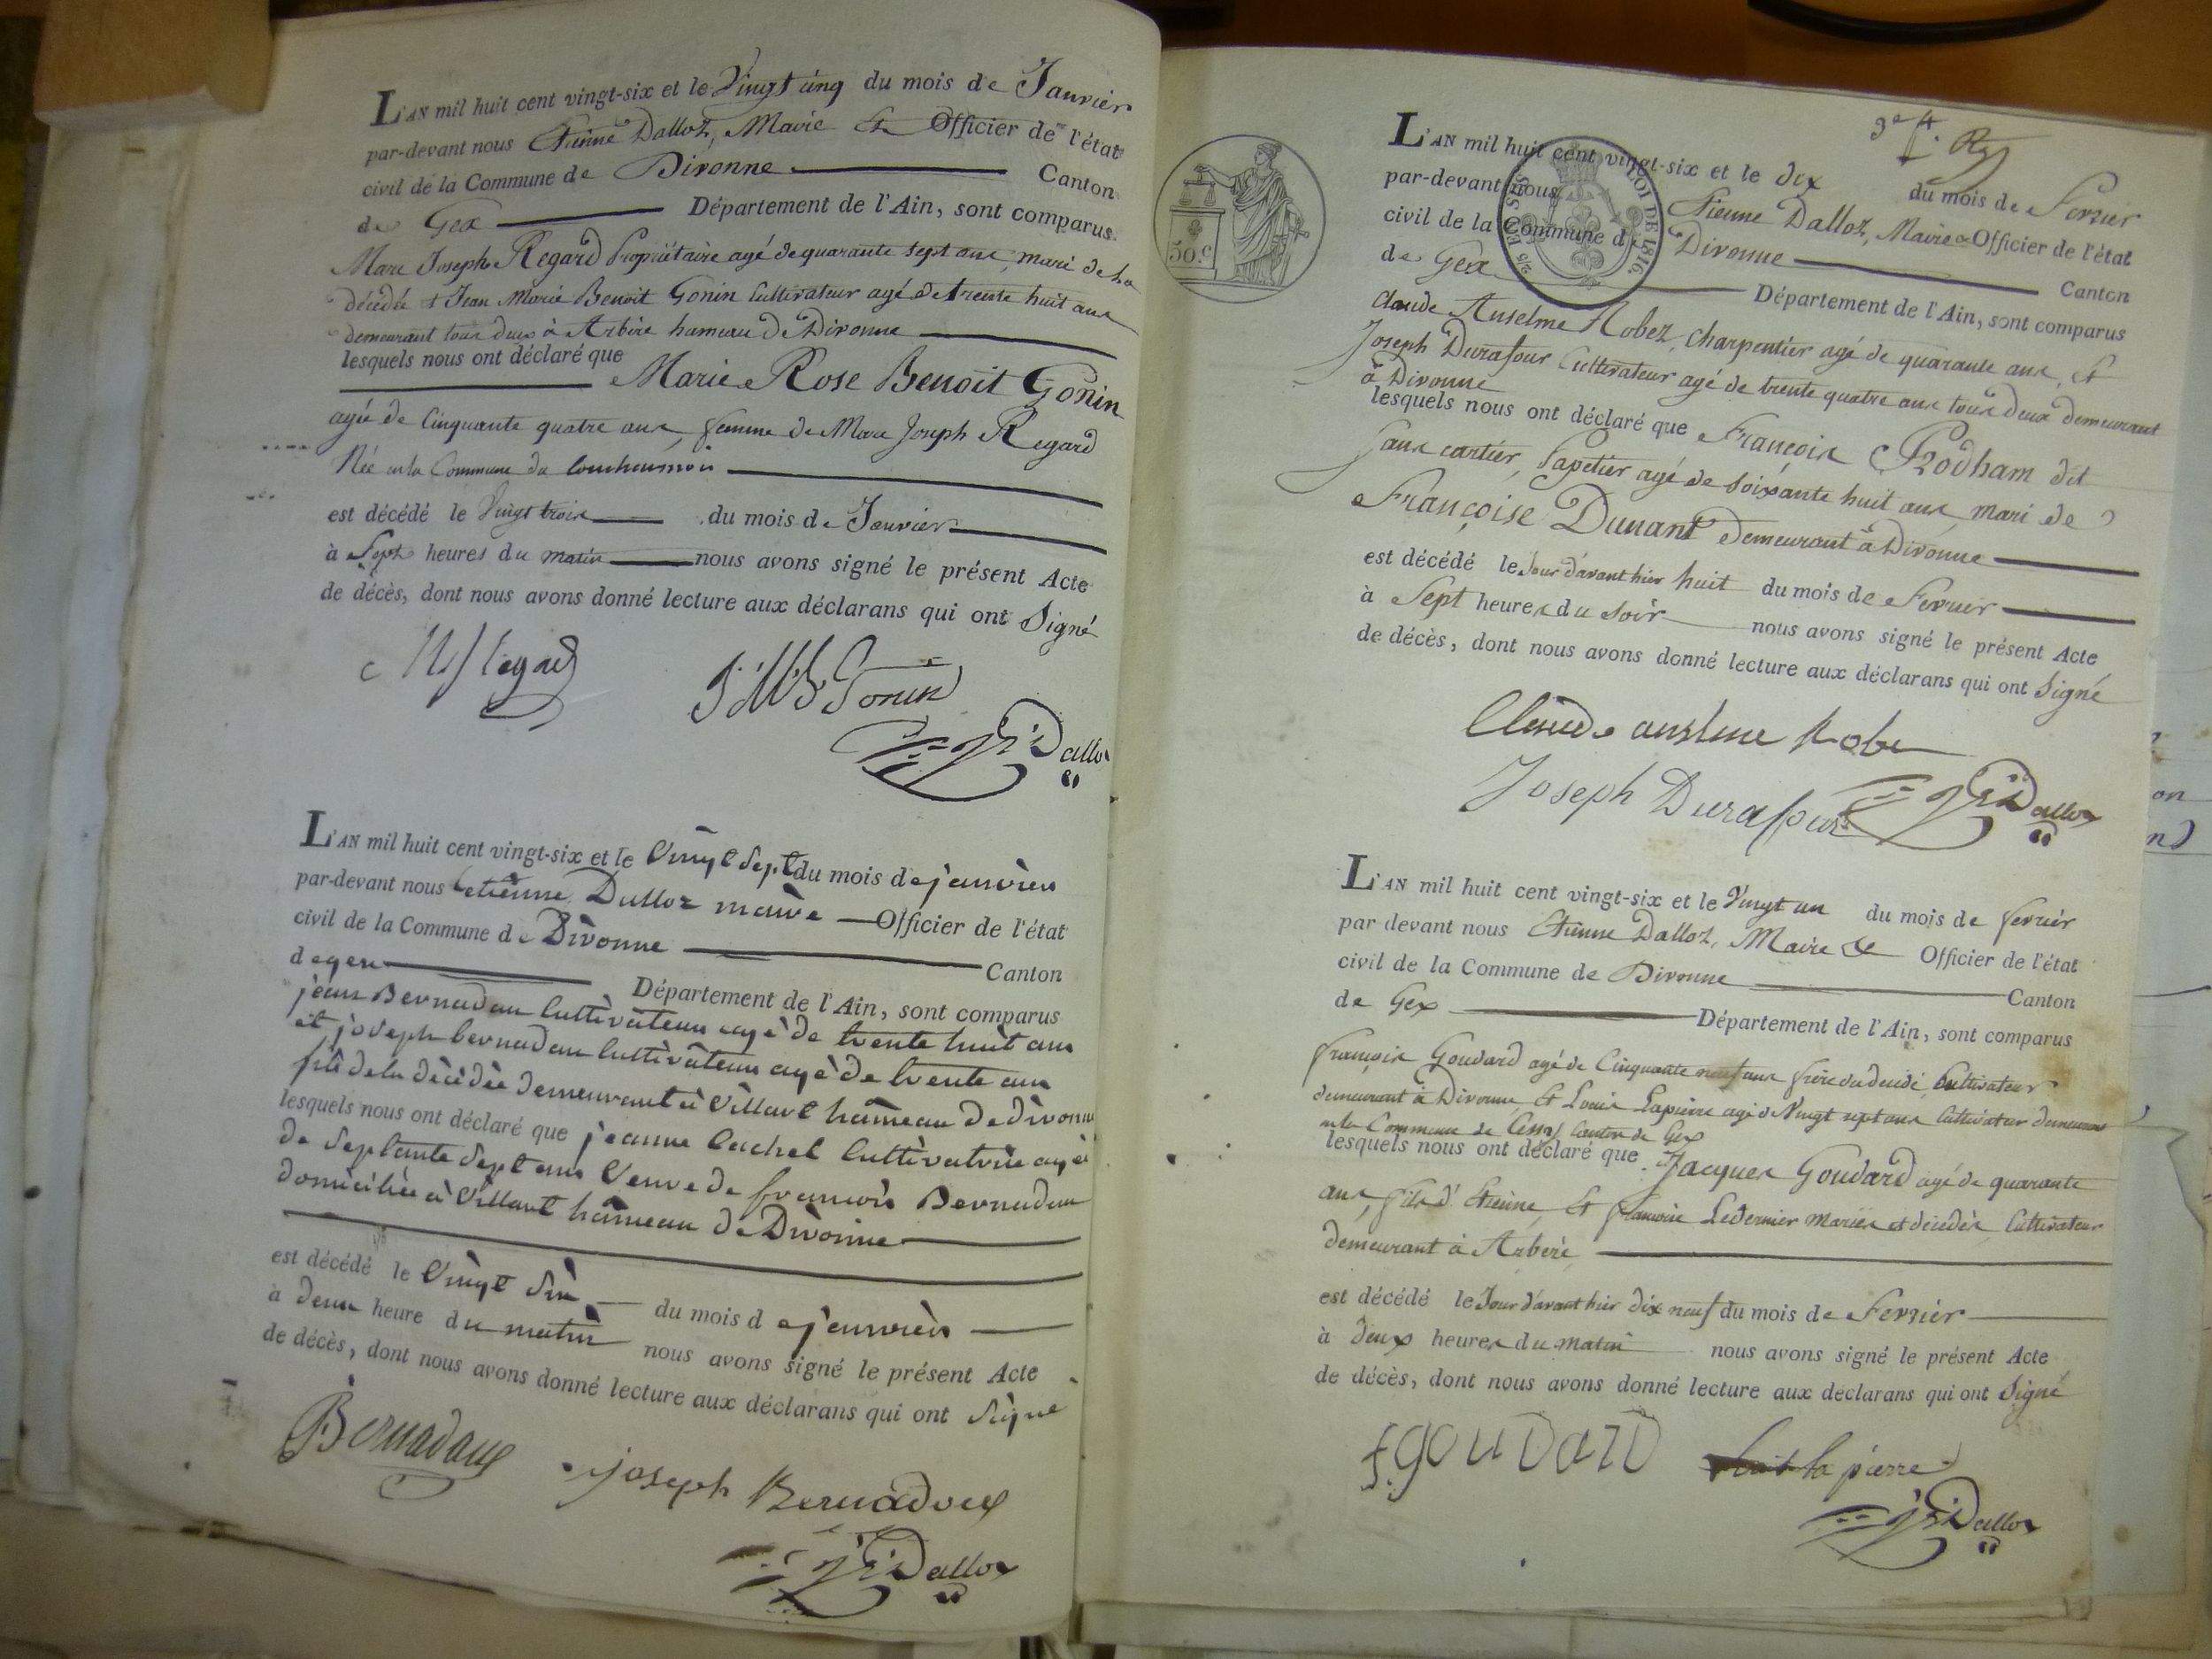 L'AN mil huit cent vingt-six et le Vingt cinq du mois de Janvier
par-devant nous Etienne Dalloz, Maire & Officier de l'état
civil de la Commune de Divonne Canton
de Gex Département de l'Ain, sont comparus
Marc Joseph Regard Propriétaire agé de quarante sept ans, mari de la
décédée & Jean Marie Benoit Gonin Cultivateur agé de trente huit ans
demeurant tous deux à Arbère hameau de Divonne
lesquels nous ont déclaré que
Marie Rose Benoit Gonin
agée de Cinquante quatre ans, femme de Marc Joseph Regard
Née en la Commune de
est décédé le Vingt trois du mois de Janvier
à Sept heures du matin nous avons signé le présent Acte
de décès, dont nous avons donné lecture aux déclarans qui ont Signé
MJ Regard
J M B Gonin
Dalloz
L'AN mil huit cent vingt-six et le Vingt Sept du mois de janvier
par-devant nous etienne Dalloz maire Officier de l'état
civil de la Commune de Divonne Canton
de gex Département de l'Ain, sont comparus
jean Bernadau Cultivateur agé de trente huit ans
et joseph bernadau Cultivateur agé de trente ans
fils de la décédée demeurant à Villard hameau de divonne
lesquels nous ont déclaré que jeanne Cachet Cultivatrice agée
de Septante Sept ans Veuve de francois Bernadau
domiciliée à Villard hameau de Divonne
est décédé le Vingt Six du mois de janvier
à deux heure du matin nous avons signé le présent Acte
de décès, dont nous avons donné lecture aux déclarans qui ont Signé
Bernadaux
joseph Bernadoux
Dalloz
3e f. Rg
L'AN mil huit cent vingt-six et le dix du mois de Fevrier
par-devant nous Etienne Dalloz, Maire & Officier de l'état
civil de la Commune de Divonne Canton
de Gex Département de l'Ain, sont comparus
50.C
LOI DE 1816.
Claude Anselme Robez, Charpentier agé de quarante ans, et
Joseph Durafour Cultivateur agé de trente quatre ans tous deux demeurant
à Divonne
lesquels nous ont déclaré que François Rodham dit
sans cartier, Papetier agé de Soixante huit ans, mari de
Françoise Dunant demeurant à Divonne
est décédé le Jour d'avant hier huit du mois de Fevrier
à Sept heures du Soir nous avons signé le présent Acte
de décès, dont nous avons donné lecture aux déclarans qui ont Signé
Claude anselme Robe
Joseph Durafour
Dalloz
L'AN mil huit cent vingt-six et le Vingt un du mois de fevrier
par devant nous Etienne Dalloz, Maire & Officier de l'état
civil de la Commune de Divonne Canton
de Gex Département de l'Ain, sont comparus
François Goudard agé de Cinquante neuf ans frère du décédé, Cultivateur
demeurant à Divonne & Louis Lapierre agé de Vingt sept ans Cultivateur demeurant
en la Commune de Cessy Canton de Gex
lesquels nous ont déclaré que Jacques Goudard agé de quarante
ans, fils d'Etienne, & Françoise Ledernier mariés et décédés, Cultivateur
demeurant à Arbère
est décédé le Jour d'avant hier dix neuf du mois de Fevrier
à deux heures du matin nous avons signé le présent Acte
de décès, dont nous avons donné lecture aux déclarans qui ont Signé
f. gouDaRD
Louis la pierre
Dalloz